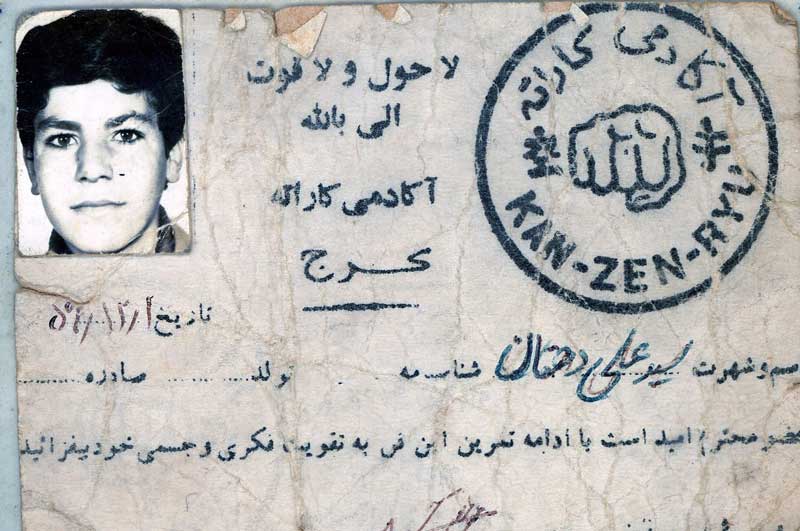 لا حول و لا قوت
الی بالله
آکادمی کاراته
کرج
آکادمی کاراته
KAN-ZEN-RYU
تاریخ
سم و شهرت سید علی دهقان شناسـ مه تولد صادره
ضو محترم امید است با ادامه تمرین این فن به تقویت فکری و جسمی خود بیفزائید